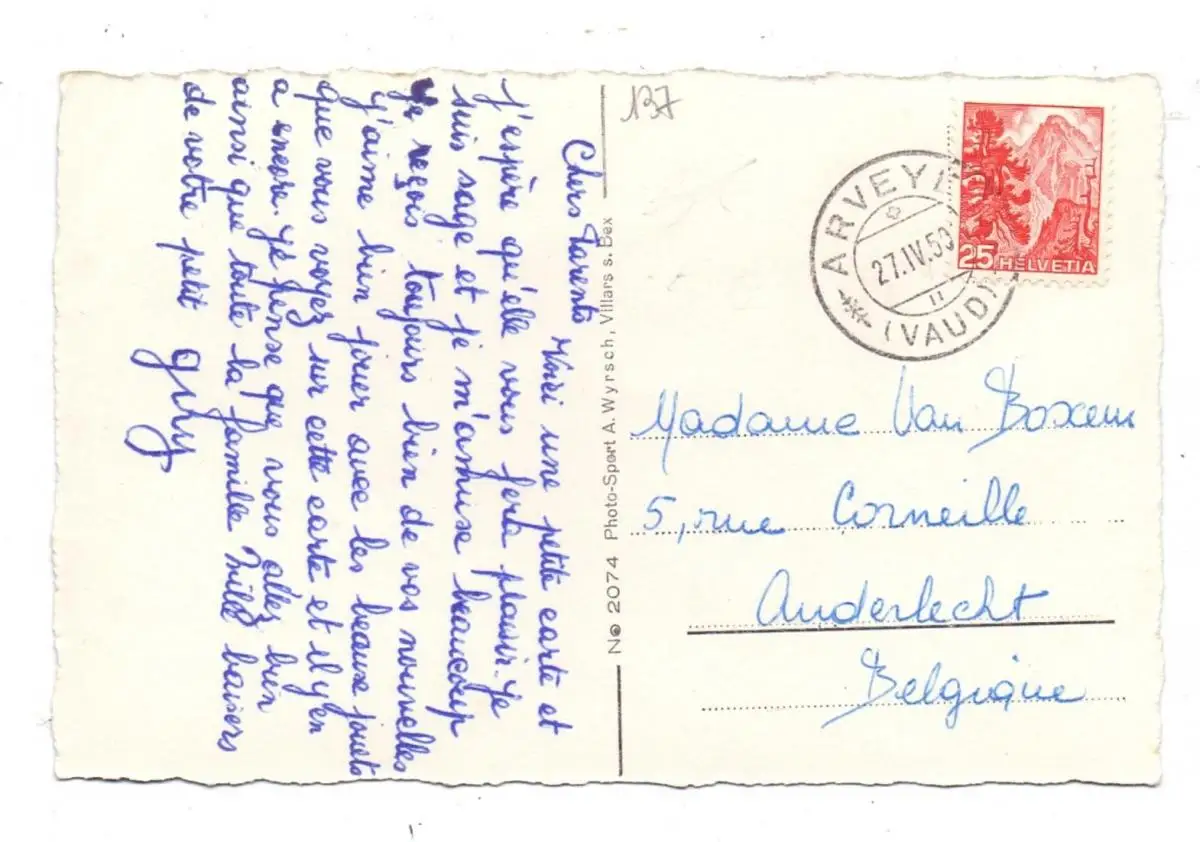 Chers Parents
Voici une petite carte et
j'espère qu'elle vous fera plaisir. Je
suis sage et je m'amuse beaucoup
Je reçois toujours bien de vos nouvelles
j'aime bien jouer avec les beaux jouets
que vous voyez sur cette carte et il y en
a encore. Je pense que vous allez bien
ainsi que toute la famille Mille baisers
de votre petit
No 2074 Photo-Sport A. Wyrsch, Villars s. Bex
137
ARVEYE
27.IV.50
(VAUD)
25 HELVETIA
Madame Van Boxem
5, rue Corneille
Anderlecht
Belgique